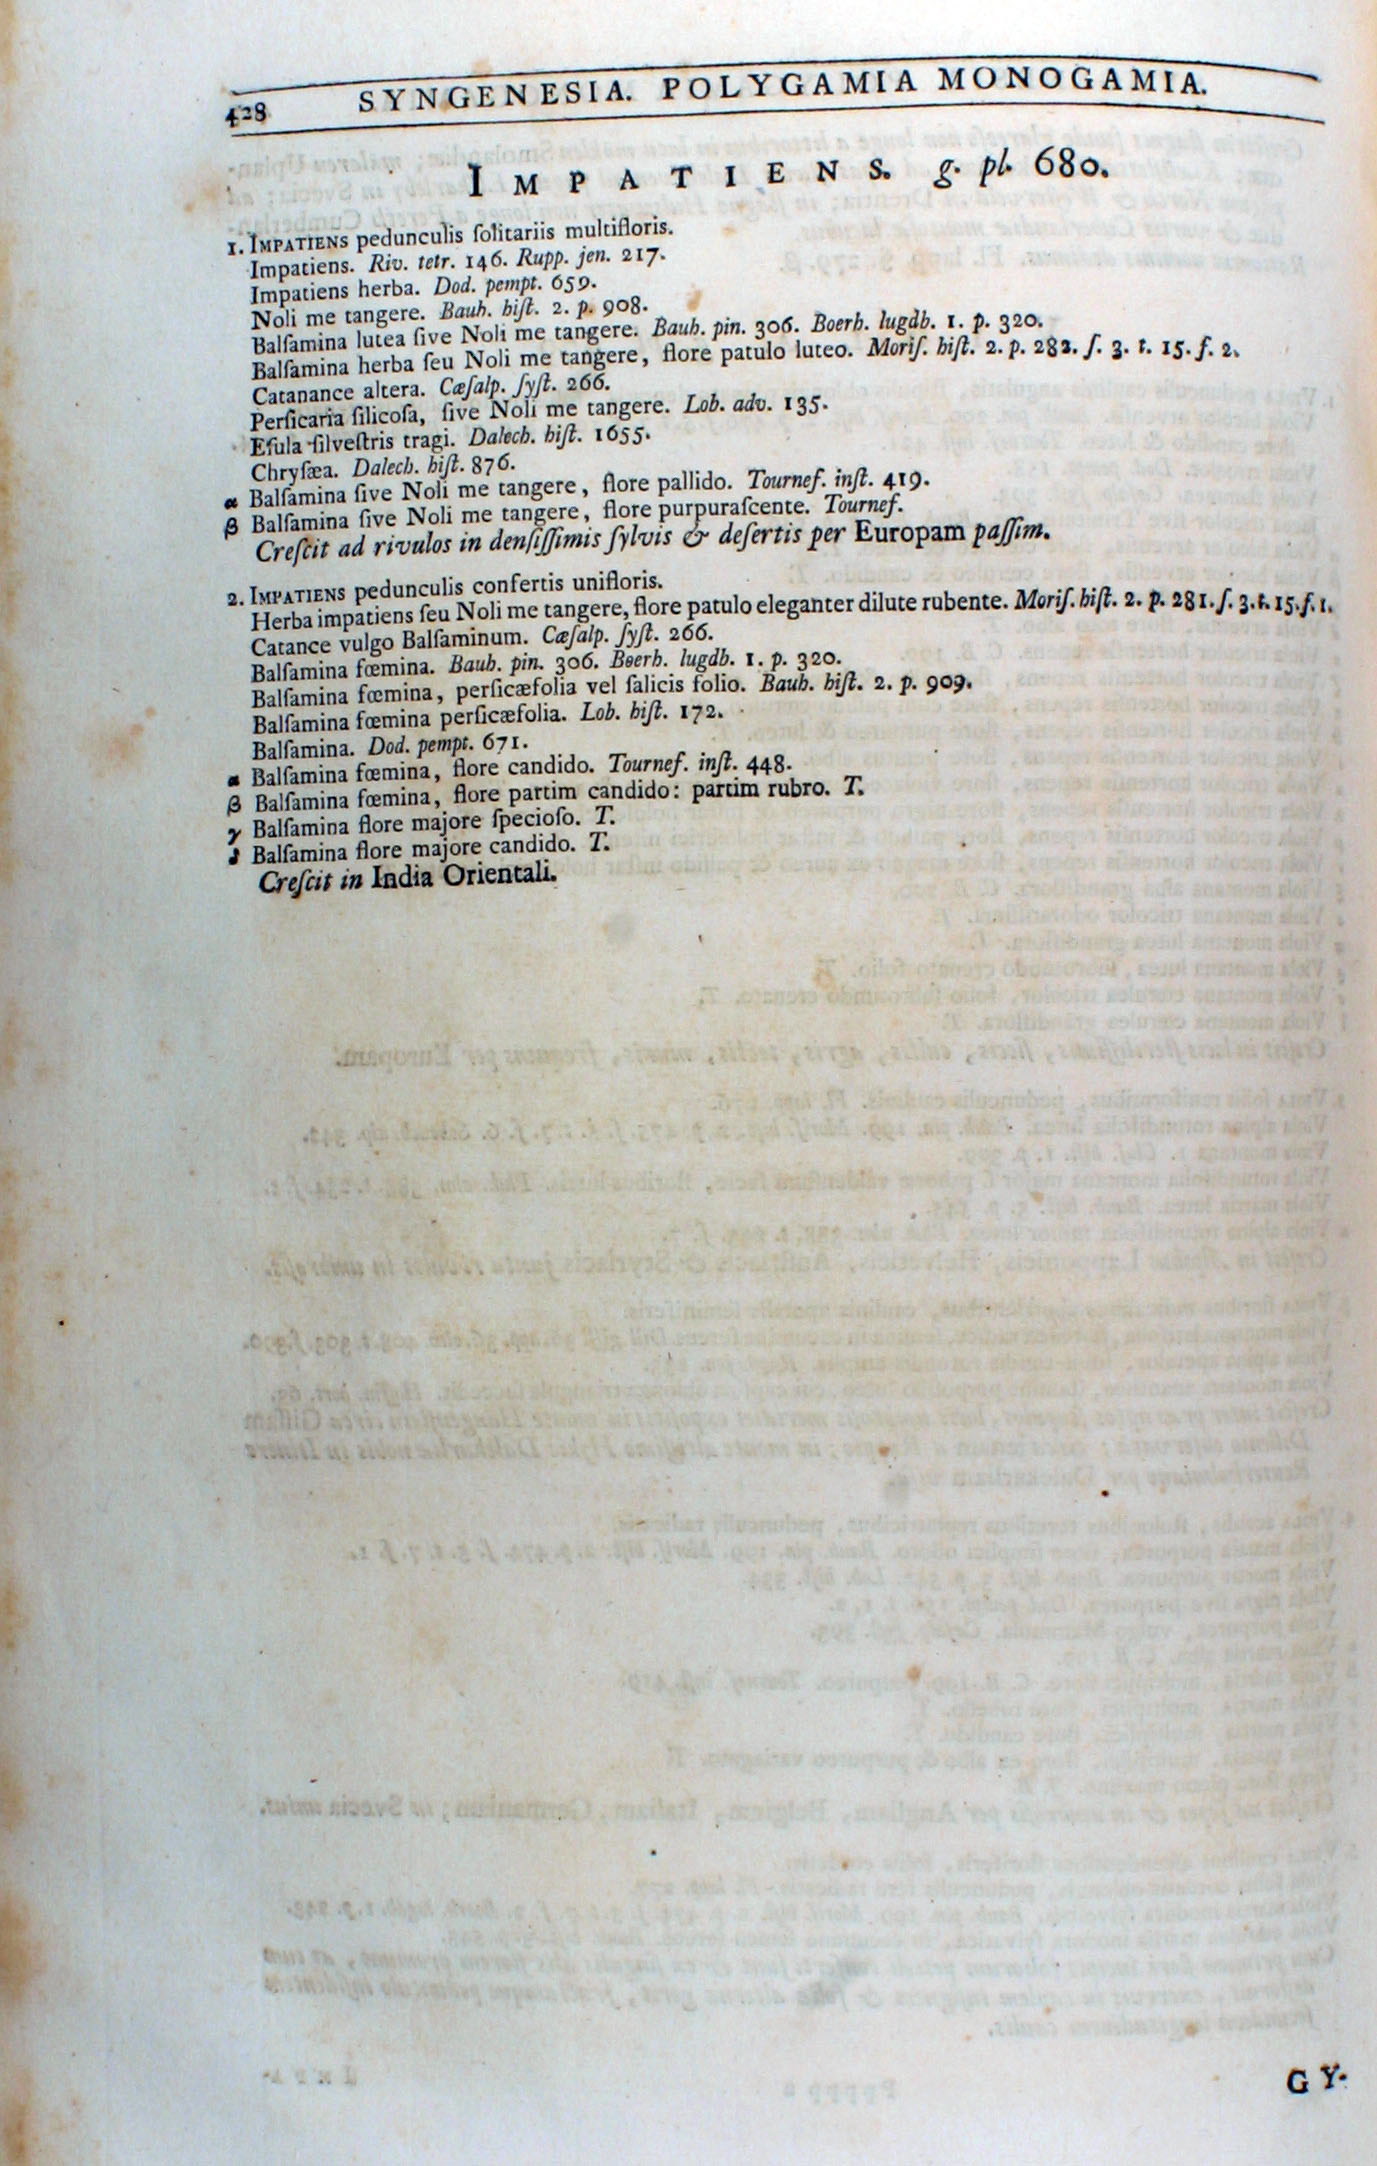 428 SYNGENESIA. POLYGAMIA MONOGAMIA.
IMPATIENS. g. pl. 680.
1. IMPATIENS pedunculis ſolitariis multifloris.
Impatiens. Riv. tetr. 146. Rupp. jen. 217.
Impatiens herba. Dod. pempt. 659.
Noli me tangere. Bauh. hiſt. 2. p. 908.
Balſamina lutea ſive Noli me tangere. Bauh. pin. 306. Boerh. lugdb. 1. p. 320.
Balſamina herba ſeu Noli me tangere, flore patulo luteo. Moriſ. hiſt. 2. p. 282. ſ. 3. t. 15. f. 2.
Catanance altera. Cæſalp. ſyſt. 266.
Perſicaria ſilicoſa, ſive Noli me tangere. Lob. adv. 135.
Eſula ſilveſtris tragi. Dalech. hiſt. 1655.
Chryſæa. Dalech. hiſt. 876.
α Balſamina ſive Noli me tangere, flore pallido. Tournef. inſt. 419.
β Balſamina ſive Noli me tangere, flore purpuraſcente. Tournef.
Creſcit ad rivulos in denſiſſimis ſylvis & deſertis per Europam paſſim.
2. IMPATIENS pedunculis confertis unifloris.
Herba impatiens ſeu Noli me tangere, flore patulo eleganter dilute rubente. Moriſ. hiſt. 2. p. 281. ſ. 3. t. 15. f. 1.
Catance vulgo Balſaminum. Cæſalp. ſyſt. 266.
Balſamina fœmina. Bauh. pin. 306. Boerh. lugdb. 1. p. 320.
Balſamina fœmina, perſicæfolia vel ſalicis folio. Bauh. hiſt. 2. p. 909.
Balſamina fœmina perſicæfolia. Lob. hiſt. 172.
Balſamina. Dod. pempt. 671.
α Balſamina fœmina, flore candido. Tournef. inſt. 448.
β Balſamina fœmina, flore partim candido: partim rubro. T.
γ Balſamina flore majore ſpecioſo. T.
δ Balſamina flore majore candido. T.
Creſcit in India Orientali.
GY-